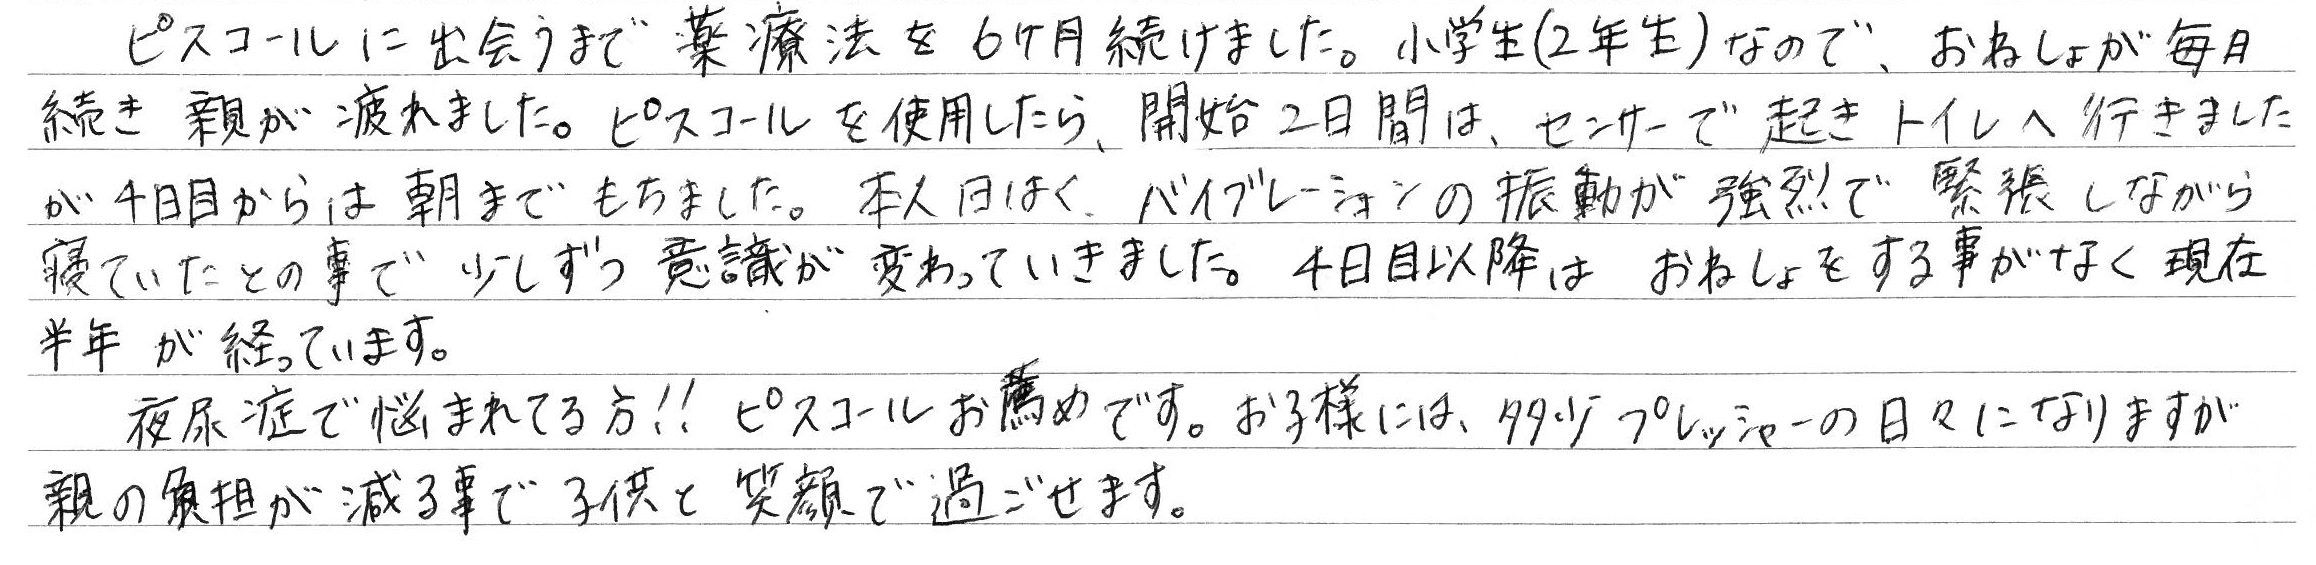 ピスコールに出会うまで薬療法を6ケ月続けました。小学生(2年生)なので、おねしょが毎日
続き 親が疲れました。ピスコールを使用したら、開始2日間は、センサーで起きトイレへ行きました
が4日目からは朝までもちました。本人曰はく、バイブレーションの振動が強烈で緊張しながら
寝ていたとの事で少しずつ意識が変わっていきました。4日目以降は おねしょをする事がなく現在
半年が経っています。
夜尿症で悩まれてる方!! ピスコールお薦めです。お子様には、多少プレッシャーの日々になりますが
親の負担が減る事で子供と笑顔で過ごせます。